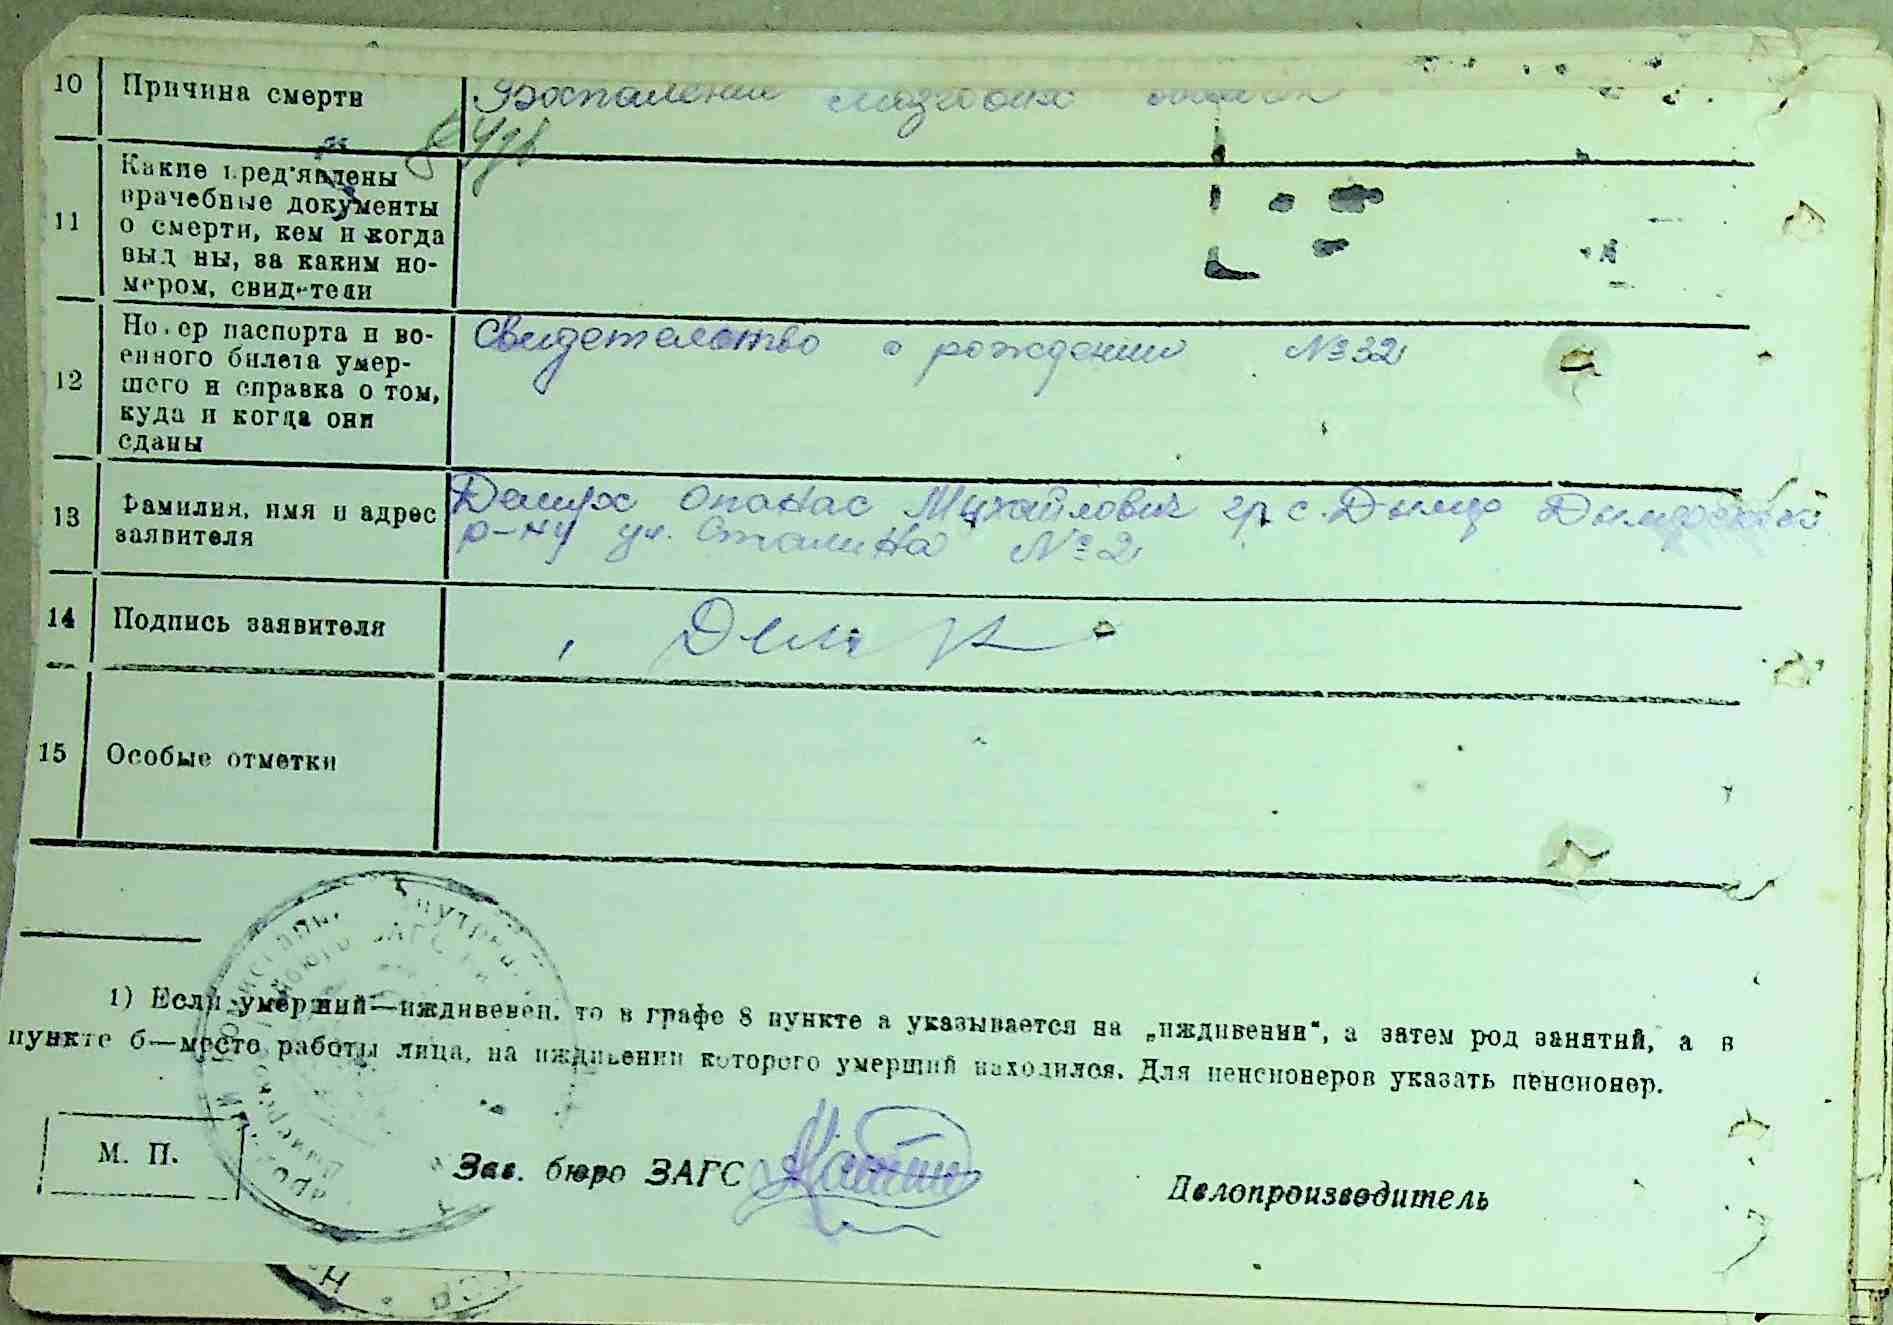 10 Причина смерти Воспаление мозговых
11 Какие пред'явлены
врачебные документы
о смерти, кем и когда
выд ны, за каким но-
мером, свидетели
12 Номер паспорта и во-
енного билета умер-
шего и справка о том,
куда и когда они
сданы
Свидетельство о рождении №32
13 Фамилия, имя и адрес
заявителя
Опанас Михайлович гр. с. Дымер
р-ну ул. Сталина №2
14 Подпись заявителя
15 Особые отметки
1) Если умерший—иждивенец, то в графе 8 пункте а указывается на „иждивении", а затем род занятий, а в
пункте б—место работы лица, на иждивении которого умерший находился. Для пенсионеров указать пенсионер.
М. П.
Зав. бюро ЗАГС
Делопроизводитель